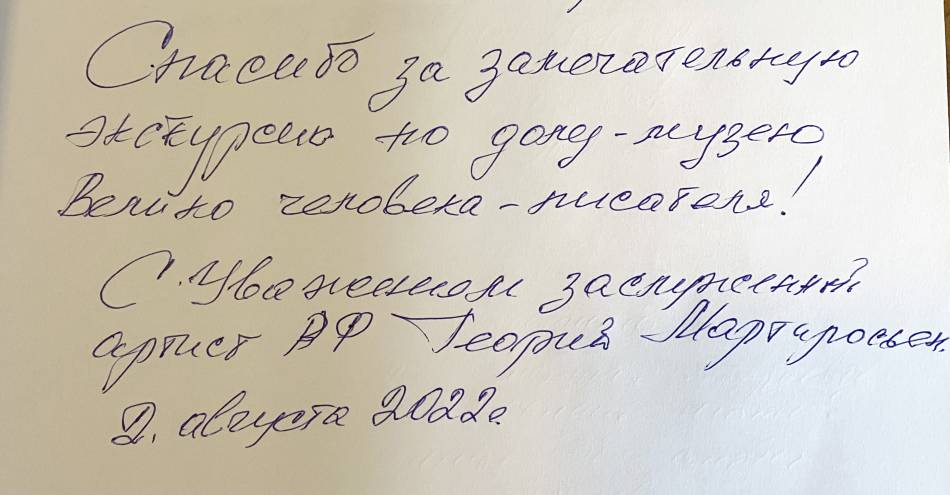 Спасибо за замечательную
экскурсию по дому-музею
Велико человека-писателя!
С Уважением заслуженный
артист РФ Георгий Мартиросьян.
2. августа 2022г.